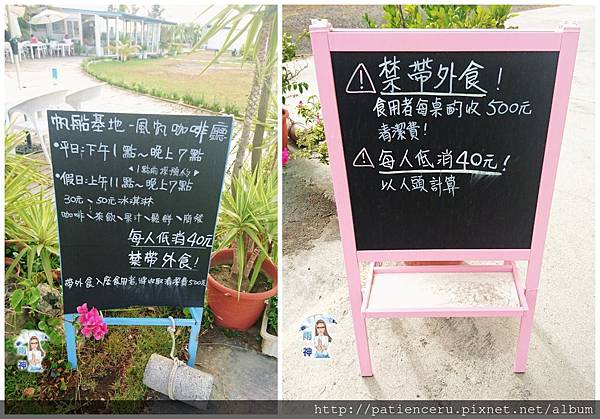 帆船基地-風釩咖啡廳
•平日:下午1點~晚上7點
•假日:上午11點~晚上7點
30元、50元冰淇淋
咖啡、茶飲、果汁、鬆餅、簡餐
每人低消40元
禁帶外食!
帶外食入座食用者,將收取清潔費500元
雨神
⚠禁帶外食!
食用者每桌酌收500元
清潔費!
⚠每人低消40元!
以人頭計算
雨神
http://patienceru.pixnet.net/album